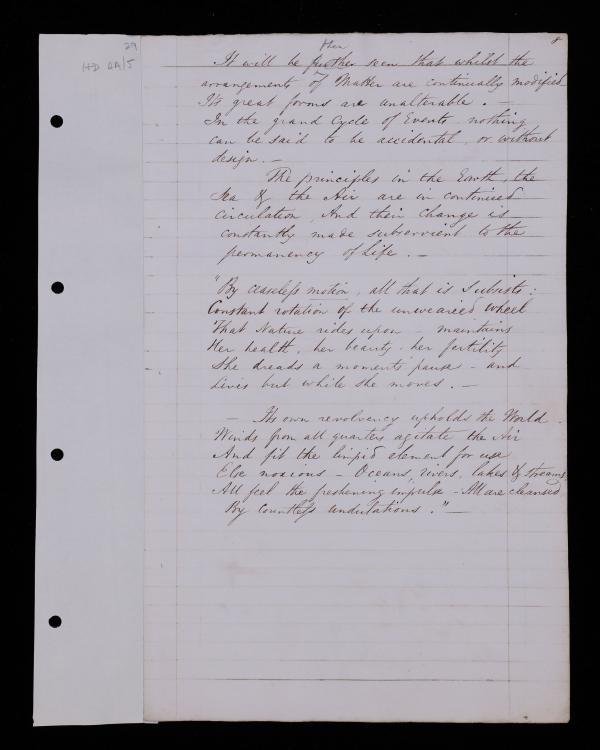 29
HD 2A/5
8
then
It will be further seen that whilst the
arrangements of Matter are continually modified
Its great forms are unalterable. —
In the grand Cycle of Events nothing
can be said to be accidental, or without
design. —
The principles in the Earth, the
Sea & the Air are in continued
circulation, And their change is
constantly made subservient to the
permanency of Life. —
"By ceaseless motion, all that is Subsists:
Constant rotation of the unwearied wheel
That Nature rides upon — maintains
Her health, her beauty, her fertility
She dreads a moments' pause — and
Lives but while she moves. —
— Its own revolvency upholds the World.
Winds from all quarters agitate the Air
And fit the limpid element for use
Else noxious — Oceans, rivers, lakes & streams,
All feel the freshening impulse — All are cleansed
By countless undulations." —